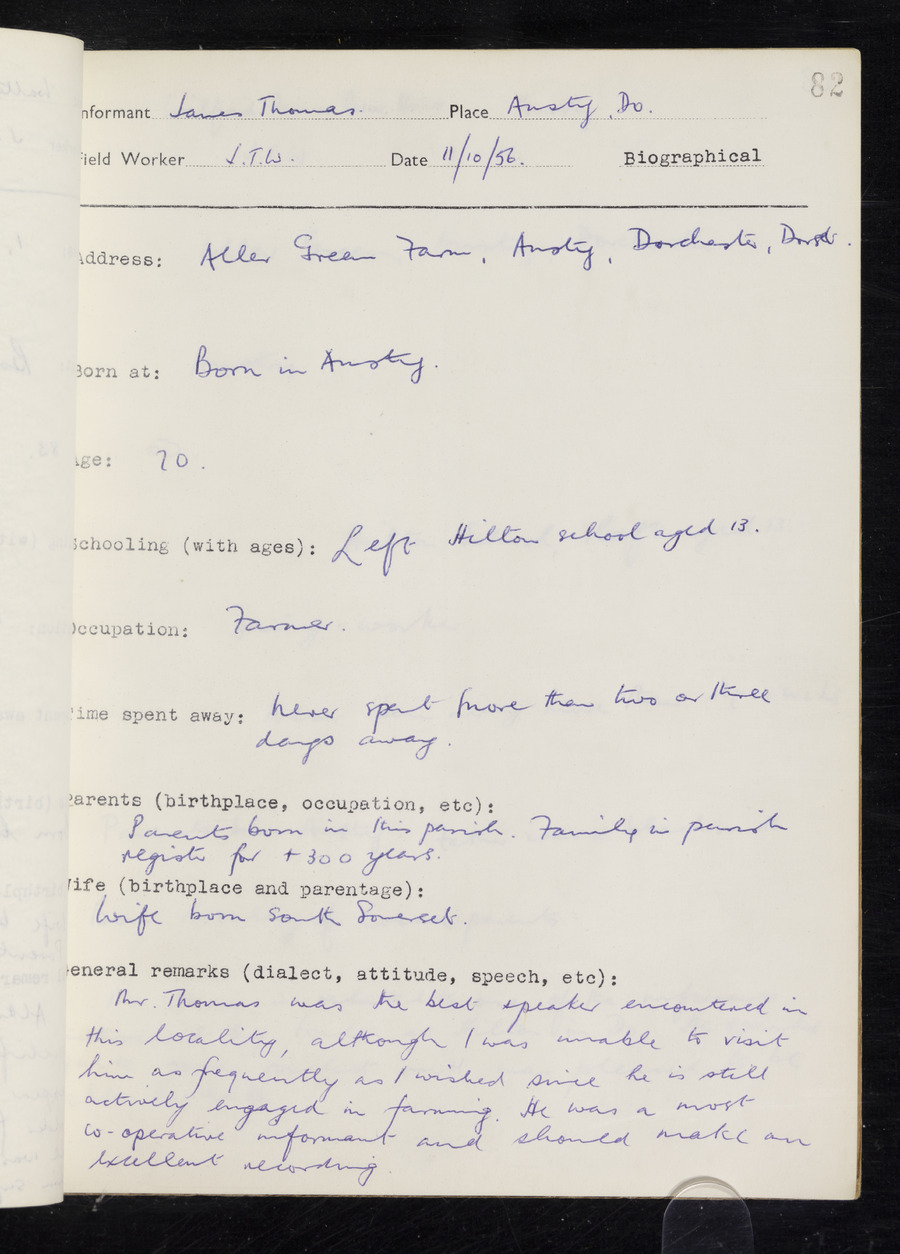 82
nformant James Thomas. Place Ansty, Do.
ield Worker J.T.W. Date 11/10/56. Biographical
Address: Aller Green Farm, Ansty, Dorchester, Dorset.
Born at: Born in Ansty.
Age: 70.
Schooling (with ages): Left Hilton school aged 13.
Occupation: Farmer.
Time spent away: Never spent more than two or three
days away.
Parents (birthplace, occupation, etc):
Parents born in this parish. Family in parish
register for + 300 years.
Wife (birthplace and parentage):
Wife born South Somerset.
eneral remarks (dialect, attitude, speech, etc):
Mr. Thomas was the best speaker encountered in
this locality, although I was unable to visit
him as frequently as I wished since he is still
actively engaged in farming. He was a most
co-operative informant and should make an
excellent recording.